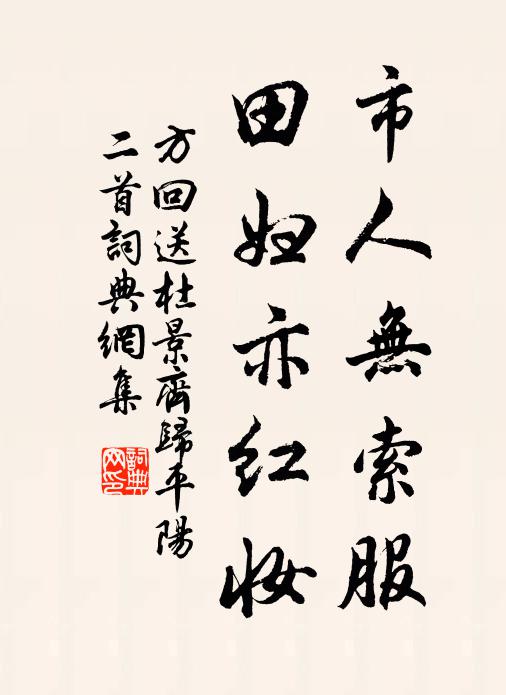 市人無索服
田妇亦红妆
方回送杜景齊歸平陽
二首詞典網集
詞典网印